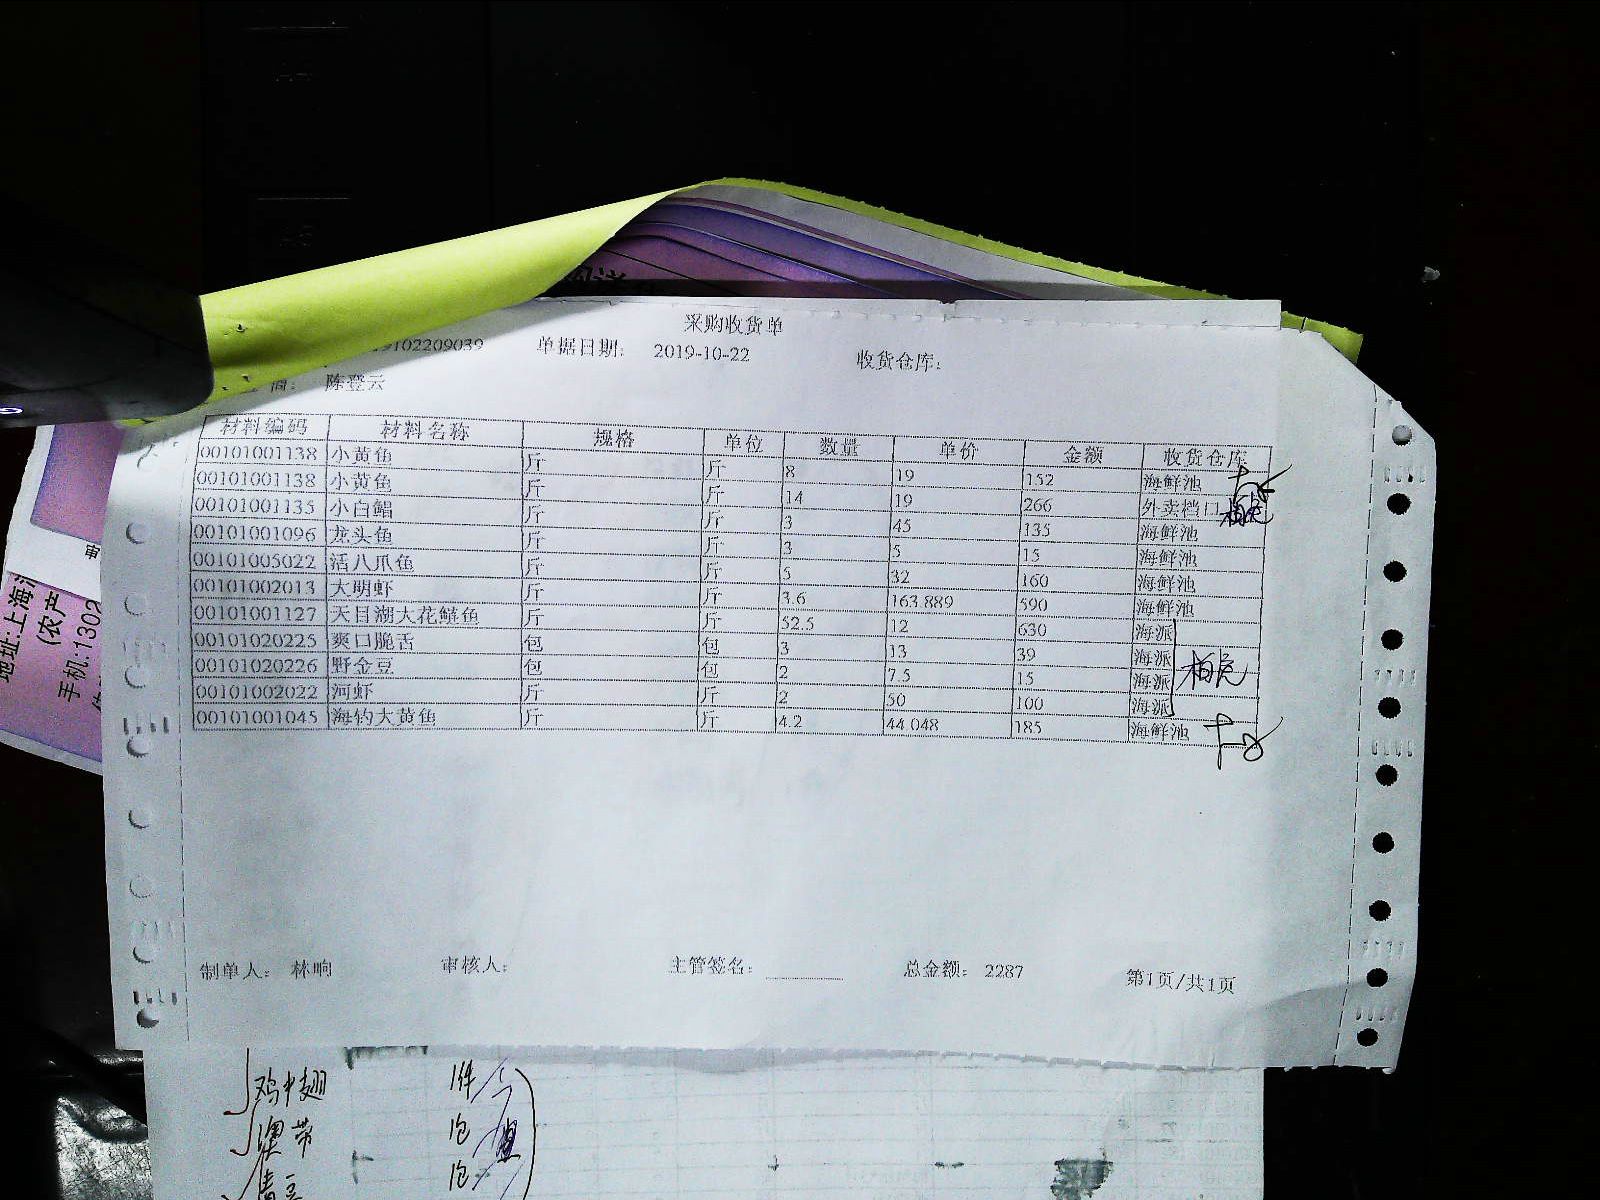 采购收货单
19102209039 单据日期: 2019-10-22 收货仓库:
商: 陈登云
材料编码 材料名称 规格 单位 数量 单价 金额 收货仓库
00101001138 小黄鱼 斤 斤 8 19 152 海鲜池
00101001138 小黄鱼 斤 斤 14 19 266 外卖档口
00101001135 小白鲳 斤 斤 3 45 135 海鲜池
00101001096 龙头鱼 斤 斤 3 5 15 海鲜池
00101005022 活八爪鱼 斤 斤 5 32 160 海鲜池
00101002013 大明虾 斤 斤 3.6 163.889 590 海鲜池
00101001127 天目湖大花鲢鱼 斤 斤 52.5 12 630 海派
00101020225 爽口脆舌 包 包 3 13 39 海派
00101020226 野金豆 包 包 2 7.5 15 海派
00101002022 河虾 斤 斤 2 50 100 海派
00101001045 海钓大黄鱼 斤 斤 4.2 44.048 185 海鲜池
制单人: 林响 审核人: 主管签名: 总金额: 2287 第1页/共1页
地址:上海
(农产
手机:1302
审
鸡中翅 1件
澳带 1包
青豆 1包